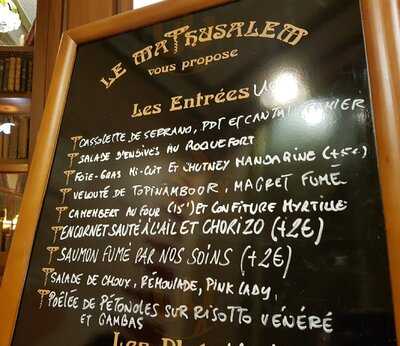 LE MATHUSALEM
vous propose
Les Entrées
CASSOLETTE DE SERRANO, PDT ET CANTAL FERMIER
SALADE D'ENDIVES AU ROQUEFORT
FOIE-GRAS MI-CUIT ET CHUTNEY MANDARINE (+5€)
VELOUTÉ DE TOPINAMBOUR, MAGRET FUMÉ
CAMEMBERT AU FOUR (15') ET CONFITURE MYRTILLE
ENCORNET SAUTÉ À L'AIL ET CHORIZO (+2€)
SAUMON FUMÉ PAR NOS SOINS (+2€)
SALADE DE CHOUX, RÉMOULADE, PINK LADY,
POÊLÉE DE PÉTONCLES SUR RISOTTO VÉNÉRÉ
ET GAMBAS
Les